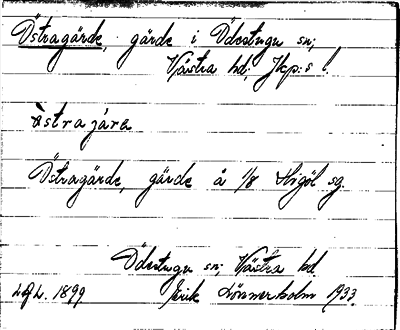 Östragärde, gärde i Ödestugu sn;
Västra hd; Jkp:s l.
östragära
Östragärde, gärde å 1/8 Stigöl sg.
Ödestugu sn; Västra hd.
1899 Erik Lönnerholm 1933